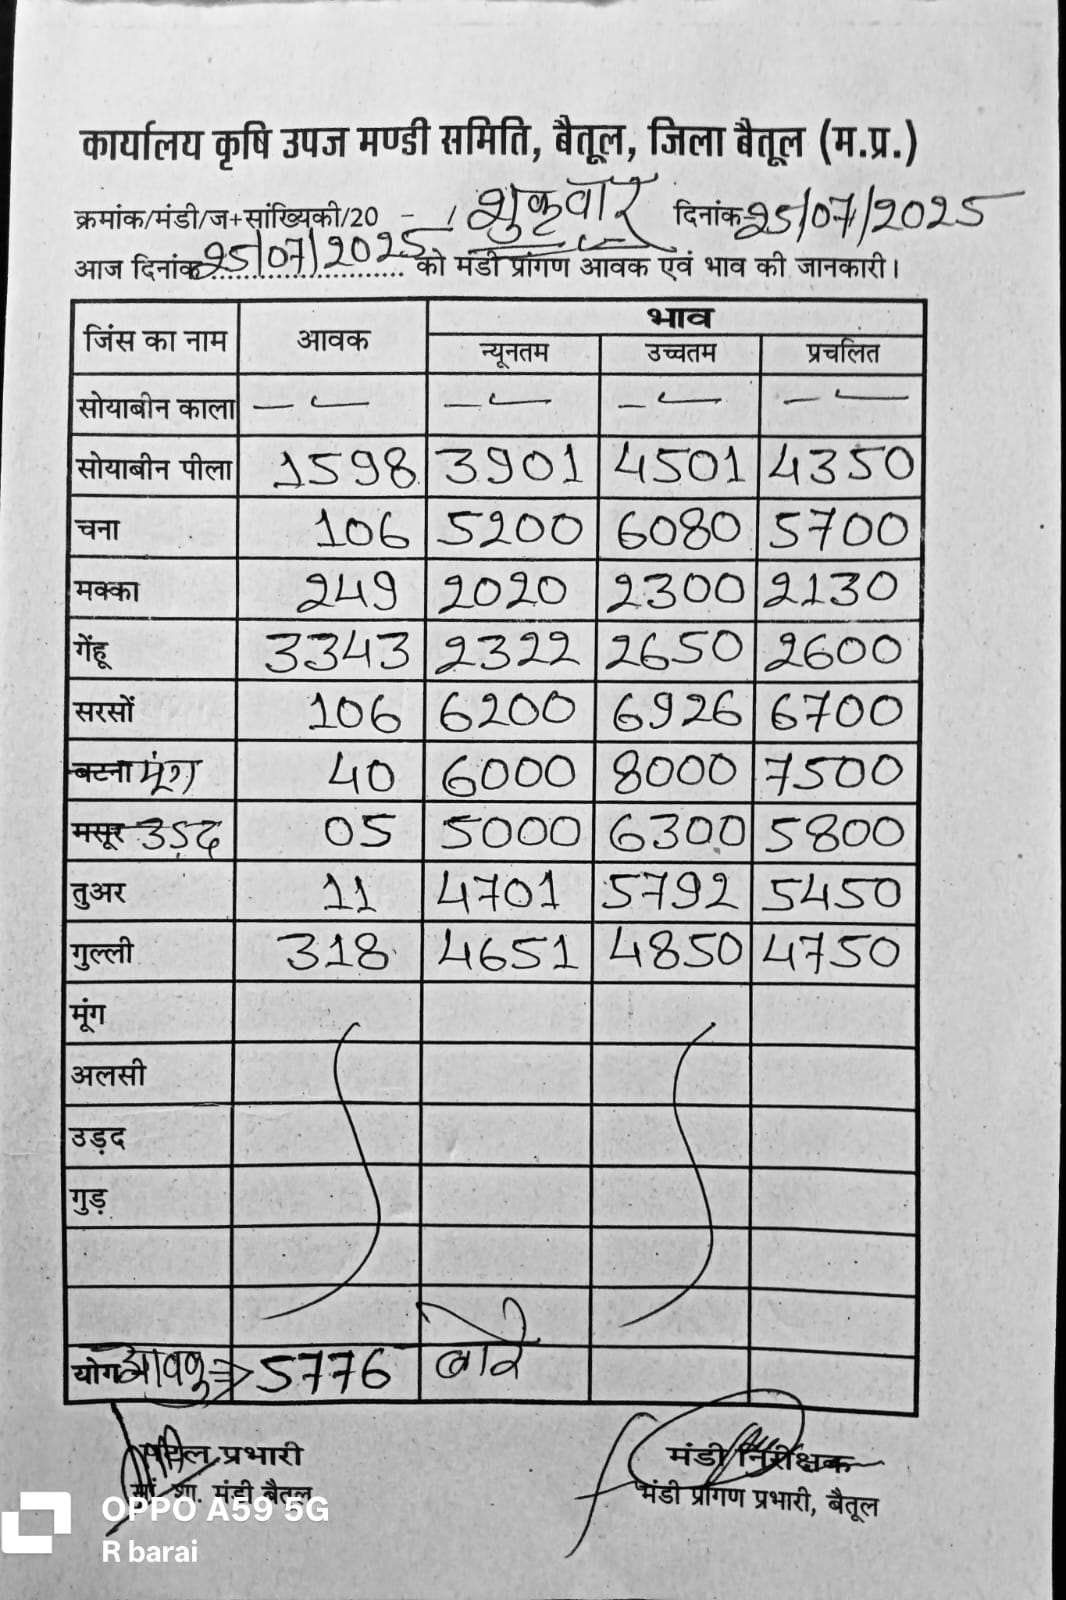 कार्यालय कृषि उपज मण्डी समिति, बैतूल, जिला बैतूल (म.प्र.)
क्रमांक/मंडी/ज+सांख्यिकी/20 - / शुक्रवार दिनांक 25/07/2025
आज दिनांक 25/07/2025 को मंडी प्रांगण आवक एवं भाव की जानकारी।
जिंस का नाम आवक भाव
न्यूनतम उच्चतम प्रचलित
सोयाबीन काला — — — —
सोयाबीन पीला 1598 3901 4501 4350
चना 106 5200 6080 5700
मक्का 249 2020 2300 2130
गेंहू 3343 2322 2650 2600
सरसों 106 6200 6926 6700
बटना मूंग 40 6000 8000 7500
मसूर उड़द 05 5000 6300 5800
तुअर 11 4701 5792 5450
गुल्ली 318 4651 4850 4750
मूंग
अलसी
उड़द
गुड़
योग आवक => 5776 बोरे
प्रभारी मंडी निरीक्षक
सां. शा. मंडी बैतूल मंडी प्रांगण प्रभारी, बैतूल
OPPO A59 5G
R barai